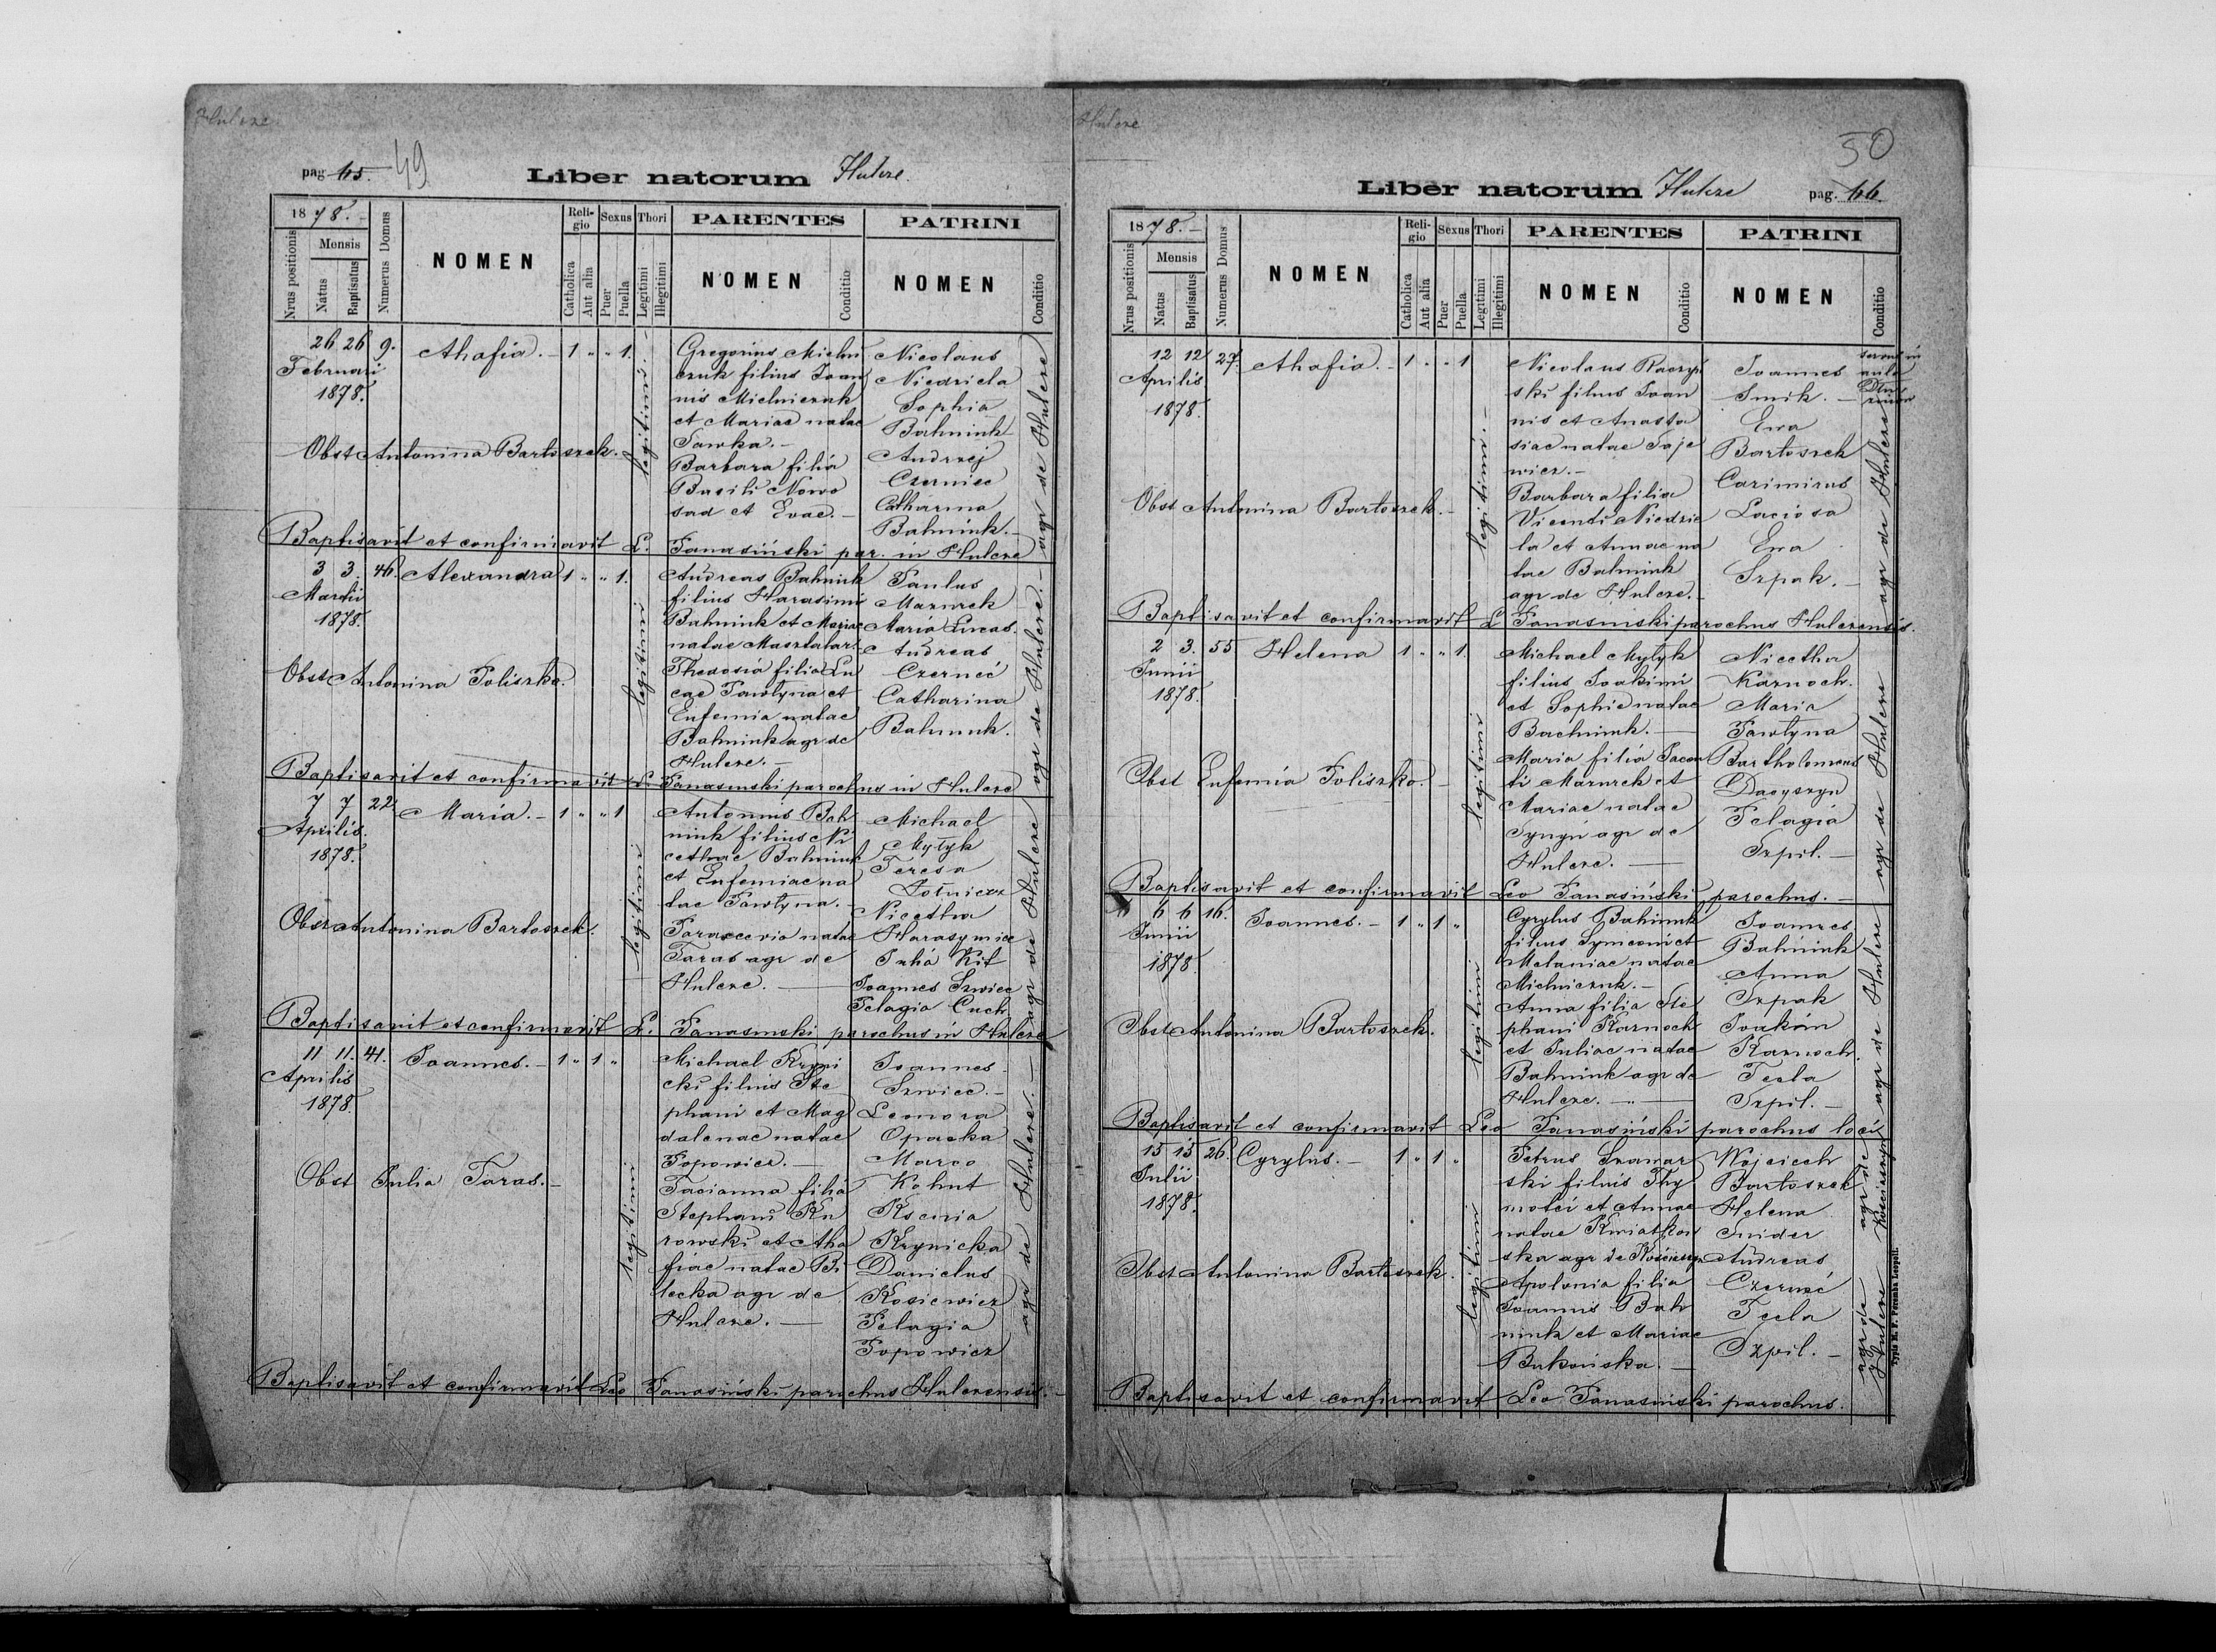 Hulcze
pag 65. 49
Liber natorum Hulcze.
1878.
Nrus positionis
Mensis
Natus
Baptisatus
Numerus Domus
NOMEN
Religio
Catholica
Aut alia
Sexus
Puer
Puella
Thori
Legitimi
Illegitimi
PARENTES
NOMEN
Conditio
PATRINI
NOMEN
Conditio
26 26 9. Ahafia. - 1 " " 1.
Februari
1878.
Obst Antonina Bartoszek.
legitimi
Gregorius Michni
czuk filius Joan
nis Michniczuk
et Mariae natae
Sawka.-
Barbara filia
Basili Nowo
sad et Evae.-
Nicolaus
Niedziela
Sophia
Bahniuk
Andrzej
Czerniec
Catharina
Bahniuk.-
agr de Hulcze
Baptisavit et confirmavit L. Panasiński par. in Hulcze
3 3 46. Alexandra 1 " " 1.
Martii
1878.
Obst Antonina Poliszko.
legitimi
Andreas Bahniuk
filius Harasimi
Bahniuk et Mariae
natae Masztalarz
Theodosia filia Lu
cae Pawlyna et
Eufemia natae
Bahniuk agr de
Hulcze.-
Paulus
Mazurek
Maria Lucas.
Andreas
Czerneć
Catharina
Bahniuk.
agr de Hulcze.
Baptisavit et confirmavit L. Panasinski parochus in Hulcze
7 7 22. Maria. - 1 " " 1
Aprilis.
1878.
Obst Antonina Bartoszek.
legitimi
Antonius Bah
niuk filius Ni
cethae Bahniuk
et Eufemiae na
tae Pawlyna.-
Parascevia natae
Taras agr de
Hulcze.
Michael
Mytyk
Teresa
Nicetha
Harasymice
Julia Kit
Joannes Szwiec
Pelagia Cuch
agr de Hulcze
Baptisavit et confirmavit L. Panasinski parochus in Hulcze
11 11. 41. Joannes. - 1 " 1 "
Aprilis
1878.
Obst Julia Taras.-
legitimi
Michael Kryni
cki filius Ste
phani et Mag
dalenae natae
Popowicz.-
Tacianna filia
Stephani Ku
rowski et Aha
fiae natae Bi
lecka agr de
Hulcze.
Joannes
Szwiec.-
Leonora
Opacka
Marco
Kohut
Ksenia
Krynicka
Danielus
Kosiewicz
Pelagia
Popowicz
agr de Hulcze.
Baptisavit et confirmavit Leo Panasiński parochus Hulczensis.-
Hulcze
50
Liber natorum Hulcze pag. 66.
1878.-
Nrus positionis
Mensis
Natus
Baptisatus
Numerus Domus
NOMEN
Religio
Catholica
Aut alia
Sexus
Puer
Puella
Thori
Legitimi
Illegitimi
PARENTES
NOMEN
Conditio
PATRINI
NOMEN
Conditio
12 12 27. Ahafia. - 1 " " 1
Aprilis
1878.
Obst Antonina Bartoszek.-
legitimi.-
Nicolaus Raczyń
ski filius Joan
nis et Anasta
siae natae Saje
wicz.-
Barbara filia
Vicenti Niedzie
la et Annae na
tae Bahniuk
agr de Hulcze.
Joannes
Smik.-
Eva
Bartoszek
Cazimirus
Eva
Szpak.-
agr de Hulcze
Baptisavit et confirmavit L Panasinski parochus Hulczensis.
2 3. 55 Helena 1 " " 1.
Junii
1878.
Obst Eufemia Poliszko.
legitimi
Michael Mytyk
filius Joakimi
et Sophie natae
Bachniuk.-
Maria filia Jacen
ti Mazurek et
Mariae natae
Synyń agr de
Hulcze.
Nicetha
Karnoch.
Maria
Pawlyna
Bartholomeus
Dacyszyn
Pelagia
Szpil.-
agr de Hulcze
Baptisavit et confirmavit Leo Panasiński parochus.-
6 6 16. Joannes. - 1 " 1 "
Junii
1878
Obst Antonina Bartoszek.
legitimi
Cyrylus Bahniuk
filius Symeoni et
Melaniae natae
Michniczuk.-
Anna filia Ste
phani Karnoch
et Juliae natae
Bahniuk agr de
Hulcze.
Joannes
Bahniuk
Anna
Szpak
Joakim
Karnoch.
Tecla
Szpil.-
agr de Hulcze
Baptisavit et confirmavit Leo Panasiński parochus loci
15 15 26. Cyrylus. - 1 " 1 "
Julii
1878.
Obst Antonina Bartoszek.
legitimi
Petrus Szamar
ski filius Thy
motei et Annae
natae Kwiatkow
ska agr de Kościaszyn
Apolonia filia
Joannis Bah
niuk et Mariae
Bukowska.-
Wojciech
Bartoszek
Helena
Snider
Andreas
Czerneć
Tecla
Szpil.-
agr de Kościaszyn
agr de Hulcze
Baptisavit et confirmavit Leo Panasinski parochus.
Typis M. F. Poremba Leopoli.